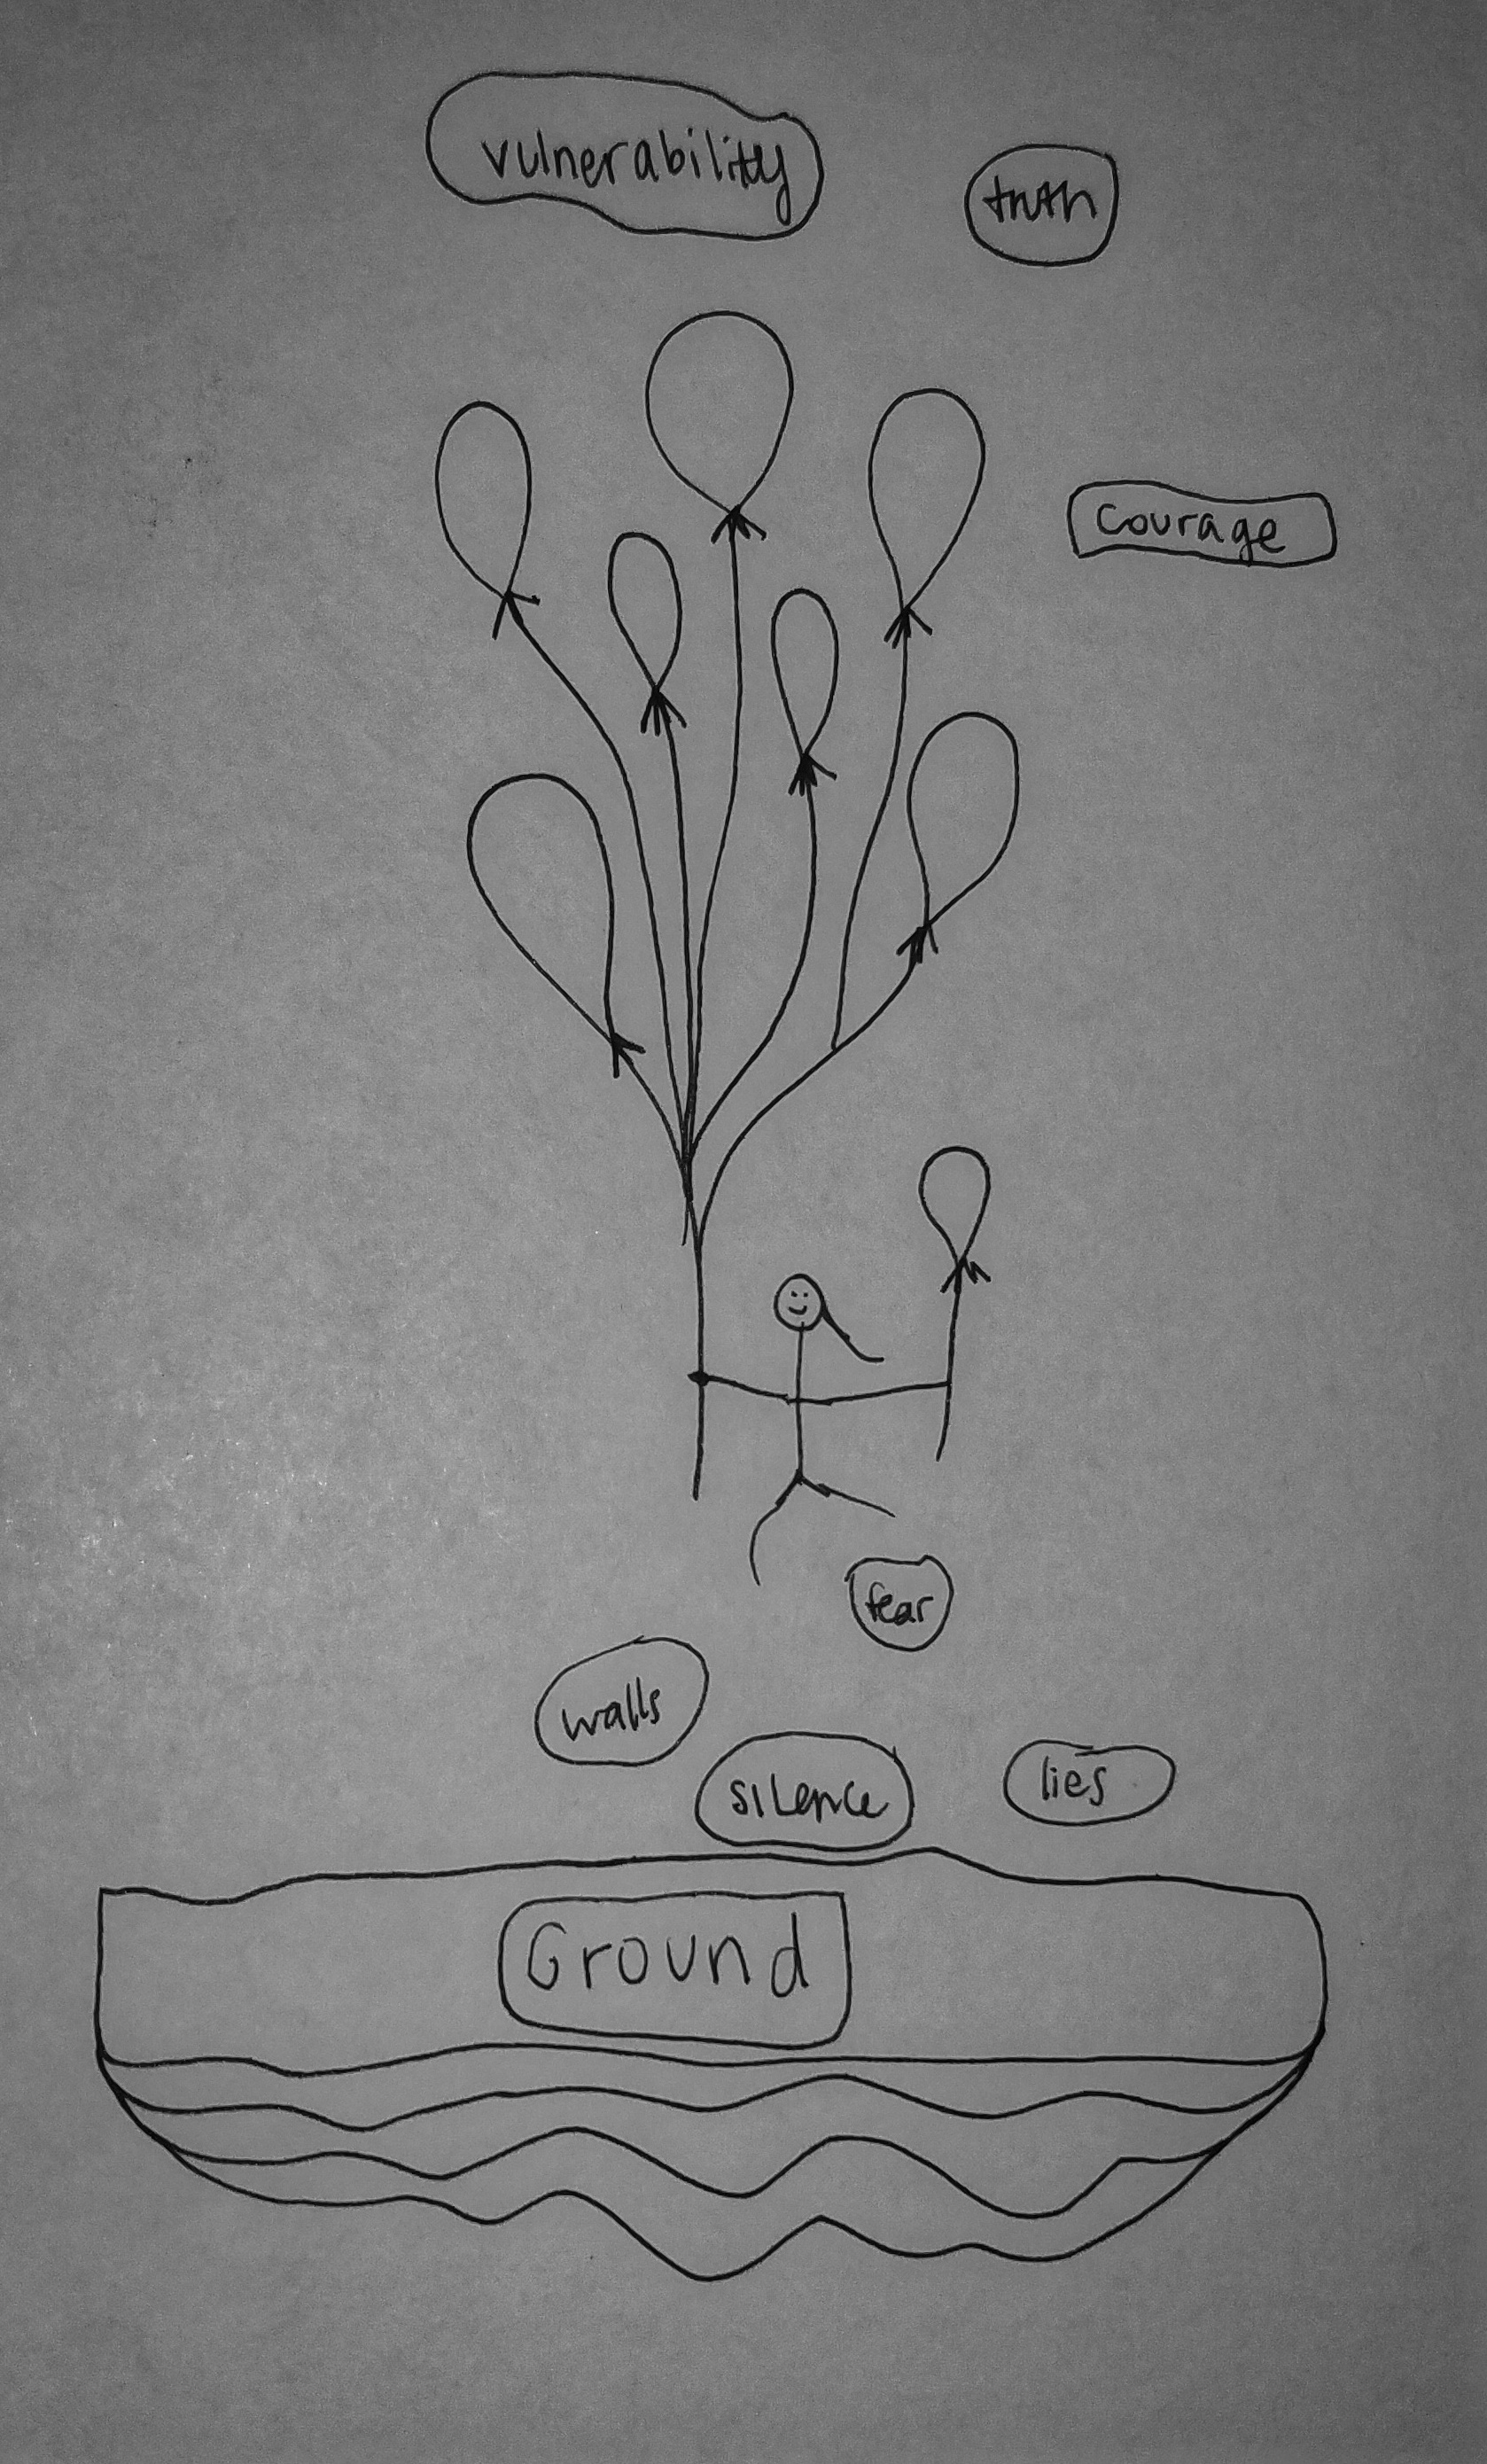 vulnerability
truth
courage
fear
walls
silence
lies
Ground